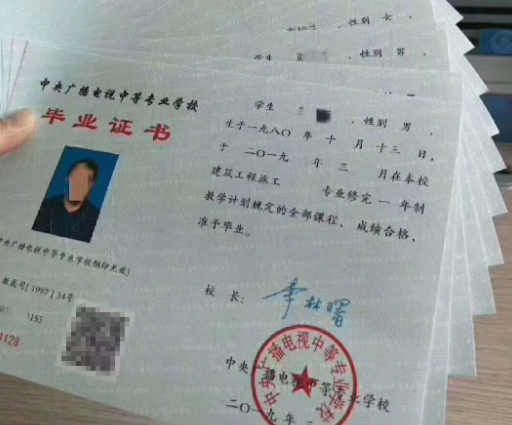 性别 女，
学生
性别 男
中央广播电视中等专业学校
毕业证书
学生
性别 男，
生于一九八〇年 十 月 十三 日，
于 二〇一九 年 三 月在本校
建筑工程施工 专业修完 一 年制
教学计划规定的全部课程，成绩合格，
准予毕业。
中央广播电视中等专业学校钢印无效)
[1997]34号
155
1128
校 长：
李林曙
中央广播电视中等专业学校
中央广播电视中等专业学校
二〇一九年